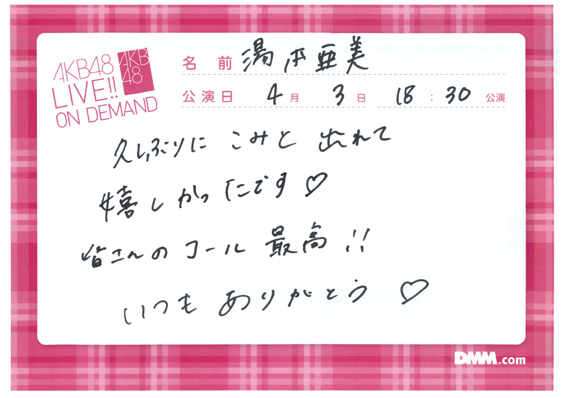 AKB48
LIVE!!
ON DEMAND
AKB
48
名前 湯本亜美
公演日 4月 3日 18:30 公演
久しぶりに こみと 出れて
嬉しかったです♡
皆さんの コール 最高!!
いつも ありがとう ♡
DMM.com